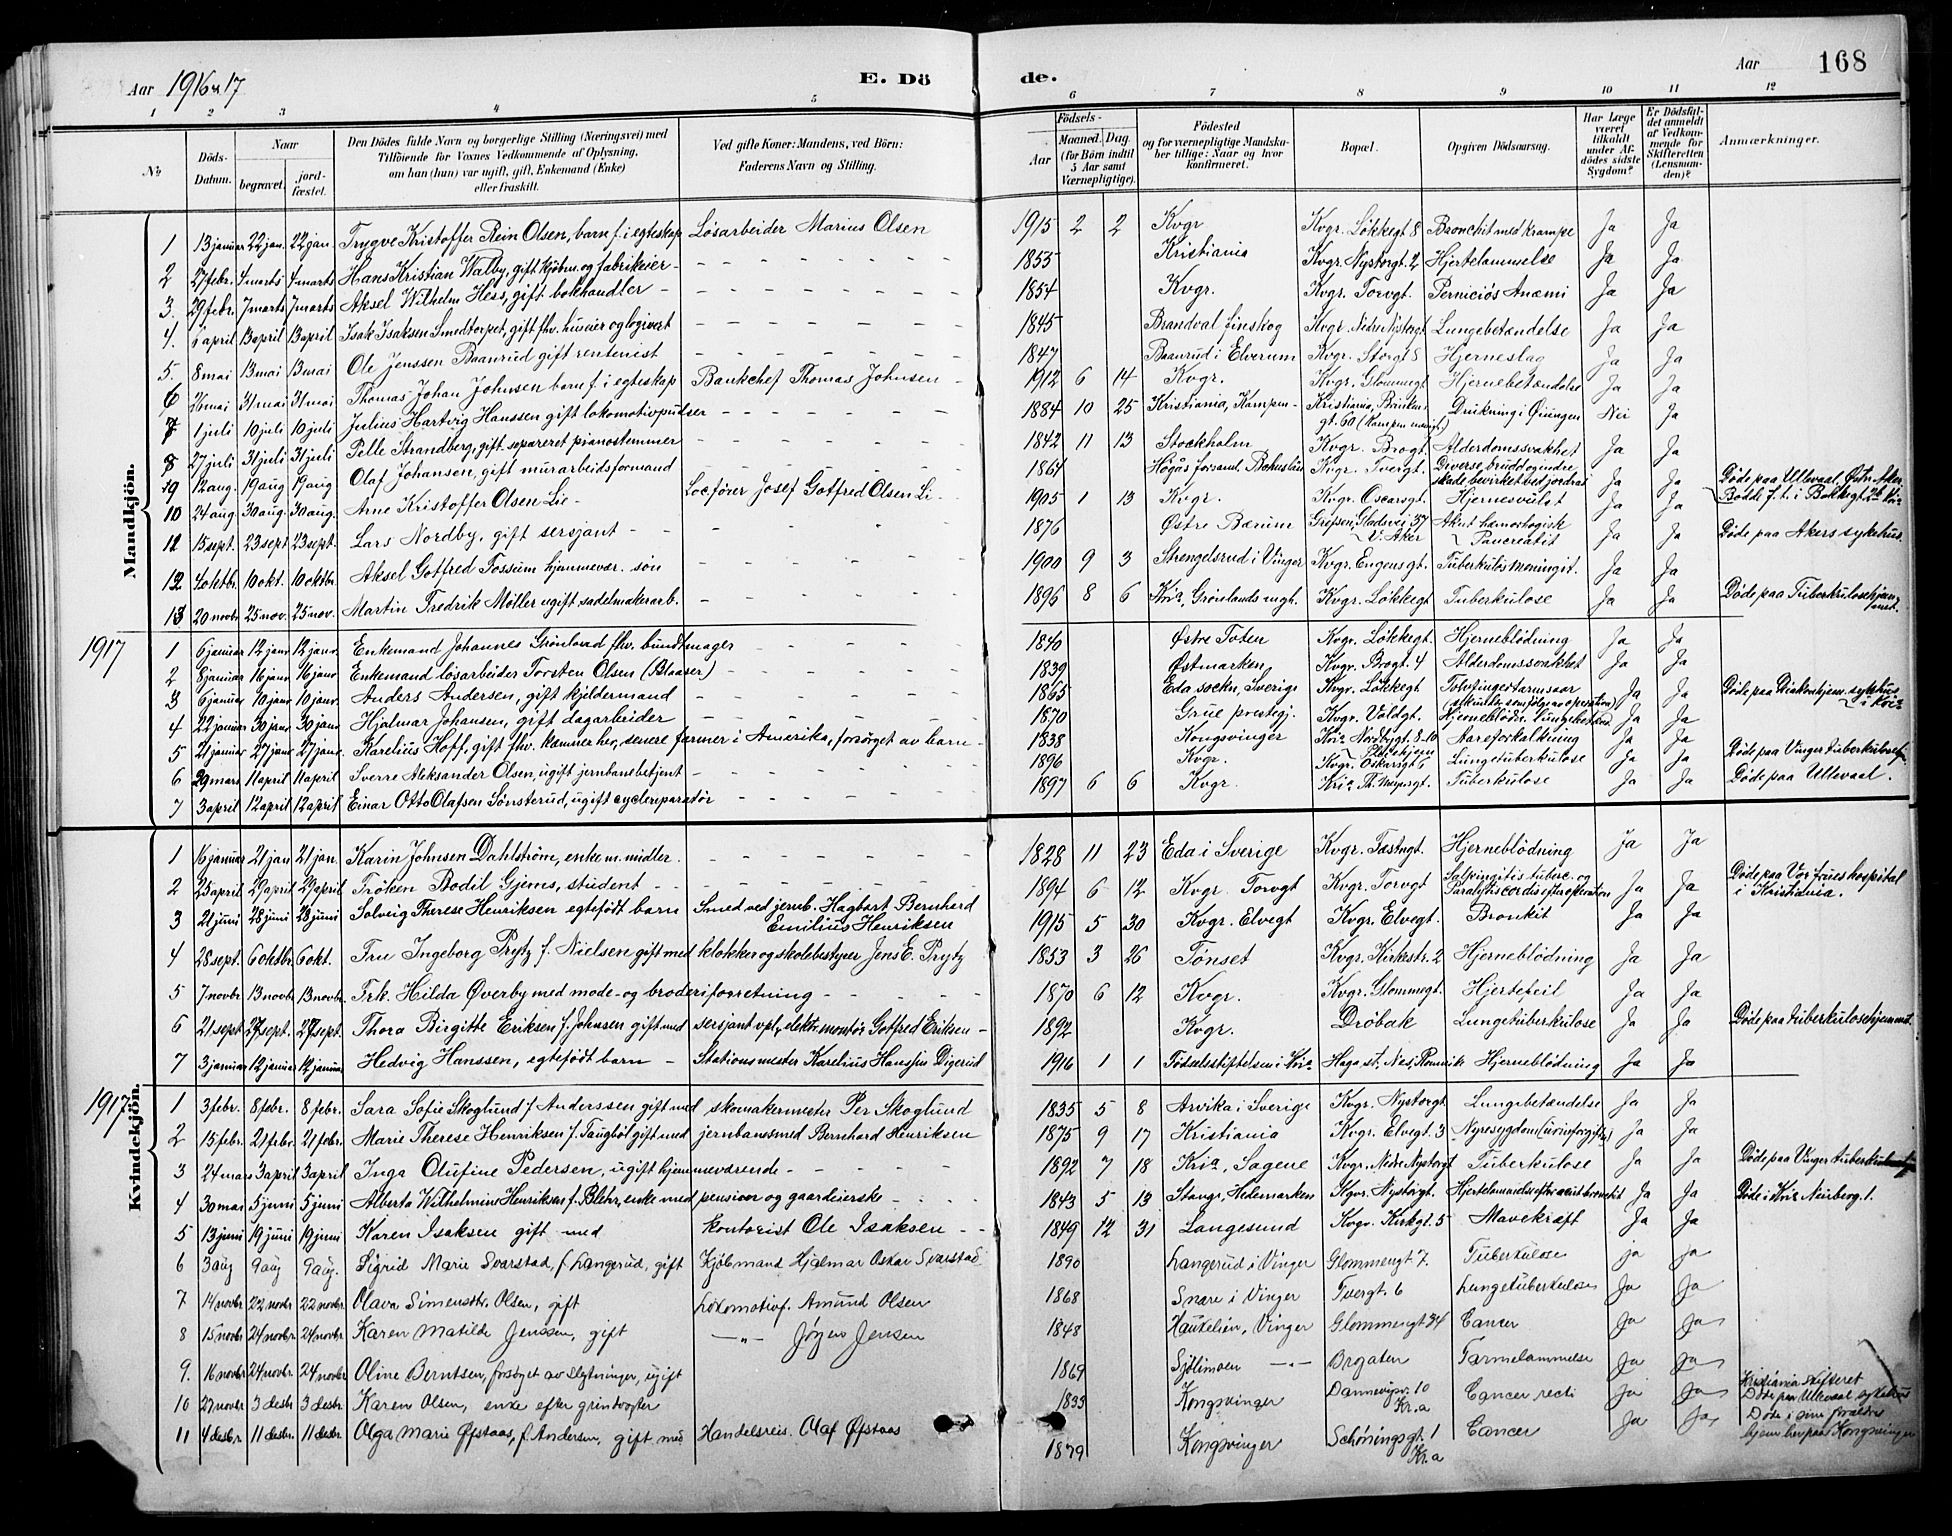 Aar 1916 & 17
E. Dö de.
Aar 168
1 2 3 4 5 6 7 8 9 10 11 12
No Döds-Datum. Naar begravet. jordfæstet. Den Dödes fulde Navn og borgerlige Stilling (Næringsvei) med Tilföiende for Voxnes Vedkommende af Oplysning, om han (hun) var ugift, gift, Enkemand (Enke) eller fraskilt. Ved gifte Koner: Mandens, ved Börn: Faderens Navn og Stilling. Födsels- Aar Maaned. Dag. (for Börn indtil 5 Aar samt Værnepligtige). Födested og for værnepligtige Mandskaber tillige: Naar og hvor konfirmeret. Bopæl. Opgiven Dödsaarsag. Har Læge været tilkaldt under Afdödes sidste Sygdom? Er Dödsfaldet anmeldt af Vedkommende for Skifteretten (Lensmanden)? Anmærkninger.
Mandkjön.
1 13 januar 22 jan. 22 jan. Trygve Kristoffer Rein Olsen, barn f. i egteskap Løsarbeider Marius Olsen 1915 2 2 Kvgr Kvgr. Løkkegt 8 Bronchit med krampe Ja Ja
2 27 febr. 4 marts 4 marts Hans Kristian Walby, gift kjøbm. og fabrikeier 1853 Kristiania Kvgr. Nystorgt. 2 Hjertelammelse Ja Ja
3. 29 febr. 7 marts 7 marts Aksel Wilhelm Hess, gift bokhandler 1854 Kvgr. Kvgr. Torvgt. Perniciös Anæmi Ja Ja
4. 6 april 13 april 13 april Isak Isaksen Smedtorpet, gift fhv. huseier og logivert 1845 Brandval finskog Kvgr. Nedre Nystorgt Lungebetændelse Ja Ja
5. 8 mai 13 mai 13 mai Ole Jenssen Baanrud gift rentenist 1847 Baanrud i Elverum Kvgr. Storgt 8 Hjerneslag Ja Ja
6 26 mai 31 mai 31 mai Thomas Johan Johnsen barn f. i egteskap Bankchef Thomas Johnsen 1912 6 14 Kvgr. Kvgr. Glommegt Hjernebetændelse Ja Ja
7 1 juli 10 juli 10 juli Julius Hartvig Hanssen gift lokomotivpudser 1884 10 25 Kristiania, Kampen Kristiania, gt. 60 (Kampen menigt) Drukning i Øiungen Nei Ja
8 27 juli 31 juli 31 juli Pelle Strandberg, gift separeret pianostemmer 1842 11 13 Stockholm Kvgr. Brogt. Alderdomssvakhet Ja Ja
9 12 aug. 19 aug 19 aug Olaf Johansen, gift murarbeidsformand 1864 Högås forsaml. Bohuslän Kvgr. Tvergt. Diverse brudd og indre skade bevirket ved jordras Ja Ja Døde paa Ullevaal, Østr. Aker. Bodde f. t. i Bokkegt. 26 Kria
10 24 aug. 30 aug. 30 aug. Arne Kristoffer Olsen Lie Locfører Josef Gotfred Olsen Li 1905 1 13 Kvgr. Kvgr. Oscarsgt. Hjernesvulst Ja Ja
11 15 sept. 23 sept 23 sept. Lars Nordby, gift sersjant 1876 Østre Bærum Grefsen, Gladsvei 37 V. Aker Akut hæmorlogisk Pancreatit Ja Ja Døde paa Akers sykehus
12 4 oktbr. 10 okt. 10 oktbr Aksel Gotfred Fossum hjemmevær. søn 1900 9 3 Strengelsrud i Vinger Kvgr. Engensgt. Tuberkuløs meningit. Ja Ja
13 20 novbr 25 nov. 25 nov. Martin Fredrik Møller ugift sadelmakerarb. 1896 8 6 Kria, Grønlands mgh. Kvgr. Løkkegt Tuberkulose Ja Ja Døde paa Tuberkulosehjemmet.
1917
1 6 januar 12 janr 12 janr. Enkemand Johannes Grønlund fhv. bundtmager 1840 Østre Toten Kvgr. Løkkegt. Hjerneblödning Ja Ja
2 8 januar 16 janr 16 janr Enkemand løsarbeider Torsten Olsen (Blaaser) 1839 Østmarken Kvgr. Brogt. 4 Alderdomssvakhet Ja Ja
3 6 januar 10 janr 10 janr. Anders Andersen, gift kjeldermand 1865 Eda sockn, Sverige Kvgr. Løkkegt Tolvfingertarmsaar (skuldes som følge av operation) Ja Ja Døde paa Diakonhjem. sykhus i Kria
4 22 januar 30 janr 30 janr Hjalmar Johansen, gift dagarbeider 1870 Grue prestegj. Kvgr. Voldgt. Hjerneblödn. Lungebetænd Ja Ja
5 21 januar 27 janr 27 janr. Karelius Hoff, gift fhv. kæmner her, senere farmer i Amerika, forsørget av barn 1838 Kongsvinger Kria Nordbygt. 8-10 Aareforkalkning Ja Ja
6 29 mars 11 april 11 april Sverre Aleksander Olsen, ugift jernbanebetjent 1896 Kvgr. Kvgr. Oskarsgt 5 Lungetuberkulose Ja Ja Døde paa Vinger tuberkulosehj.
7 3 april 12 april 12 april Einar Otto Olafsen Sønsterud, ugift cyclereparatør 1897 6 6 Kvgr. Kria Th. Meyersgt. Tuberkulose Ja Ja Døde paa Ullevaal.
Kvindekjön.
1 16 januar 21 jan 21 jan. Karin Johnsen Dahlström, enke m. midler. 1828 11 23 Eda i Sverige Kvgr. Fæstngt. Hjerneblödning Ja Ja
2 25 april 29 april 29 april Frøken Bodil Gjems, student 1894 6 12 Kvgr. Torvgt Kvgr. Torvgt Salpingitis tuberc. og Paralysis cordis efter operation Ja Ja Døde paa Vor frues hospital i Kristiania.
3 21 juni 28 juni 28 juni Solveig Therese Henriksen egtefødt barn Smed ved jernb. Hagbart Bernhard Emilius Henriksen 1915 5 30 Kvgr. Elvegt Kvgr. Elvegt. Bronkit Ja Ja
4 28 sept. 6 oktbr 6 okt. Fru Ingeborg Prytz f. Nielsen gift med klokker og skolebestyrer Jens E. Prytz 1853 3 26 Tönset Kvgr. Kirkestr. 2 Hjerneblödning Ja Ja
5 7 novbr. 13 novbr 13 novbr. Frk. Hilda Øverby med mode- og broderiforretning 1870 6 12 Kvgr. Kvgr. Glommegt. Hjertefeil Ja Ja
6 21 sept 27 sept. 27 sept. Thora Birgitte Eriksen f. Johnsen gift med sersjant vpl, elektr. montør Gotfred Eriksen 1892 Kvgr. Drøbak Lungetuberkulose Ja Ja Døde paa tuberkulosehjemmet.
7 3 januar 12 januar 12 januar Hedvig Hanssen, egtefødt barn Stationsmester Karelius Hansen Digerud 1916 1 1 Fødselsstiftelsen i Kria Haga st. Nes, Romerik Hjerneblödning Ja Ja
1917
1 3 febr. 8 febr. 8 febr. Sara Sofie Skoglund f. Anderssen gift med skomakermester Per Skoglund 1835 5 8 Arvika i Sverige Kvgr. Nystorgt Lungebetændelse Ja Ja
2 15 febr. 21 febr 21 febr. Marie Therese Henriksen f. Taugböl gift med jernbanesmed Bernhard Henriksen 1875 9 17 Kristiania Kvgr. Elvegt. 3 Nyresygdom (urinforgiftn) Ja Ja
3 24 mars 3 april 3 april Inga Olufine Pedersen, ugift hjemmeværende 1892 7 18 Kria, Sagene Kvgr. Nedre Nystorgt Tuberkulose Ja Ja Døde paa Vinger tuberkulosehj.
4 30 mai 5 juni 5 juni Alberta Wilhelmine Henriksen f. Blehr, enke med pension og gaardeierske 1843 5 13 Stange, Hedemarken Kgvr. Nystorgt. Hjertelamelse efter acut bronchit Ja Ja Døde i Kria Neuberg. 1.
5 13 juni 19 juni 19 juni Karen Isaksen gift med kontorist Ole Isaksen 1849 12 31 Langesund Kvgr. Kirkgt. 5 Mavekræft Ja Ja
6 3 aug 9 aug 9 aug. Sigrid Marie Svarstad, f. Langerud, gift Kjöbmand Hjalmar Oskar Svarstad 1890 Langerud i Vinger Glommengt 7. Tuberkulose ja ja
7 14 novbr 22 novbr 22 novbr. Olava Simensdtr. Olsen, gift Lokomotivf. Amund Olsen 1868 Snare i Vinger Tvergt. 6 Lungetuberkulose Ja Ja
8 15 novbr 24 novbr. 24 novbr. Karen Matilde Jenssen, gift —"— Jørgen Jensen 1848 Haukelien, Vinger Glommengt 34 Cancer Ja Ja
9. 16 novbr 24 novbr. 24 novbr Oline Berntsen, forsørget av slegtninger, ugift 1869 Sjölimoen —"— Brogaten Tarmelammelse Ja Ja
10 27 novbr 3 desbr 3 desbr. Karen Olsen, enke efter grindvogter 1833 Kongsvinger Dannevigsv. 10 Kr.a Cancer recti Ja Ja Kristiania skifteret Døde paa Ullevaal sykehus
11 4 desbr 11 desbr. 11 desbr. Olga Marie Øfstaas, f. Andersen, gift med Handelsreis. Olaf Øfstaas 1879 Kongsvinger Schøningsgt. 1 Kr.a Cancer Ja Ja Døde i sine forældres hjem her paa Kongsvinger